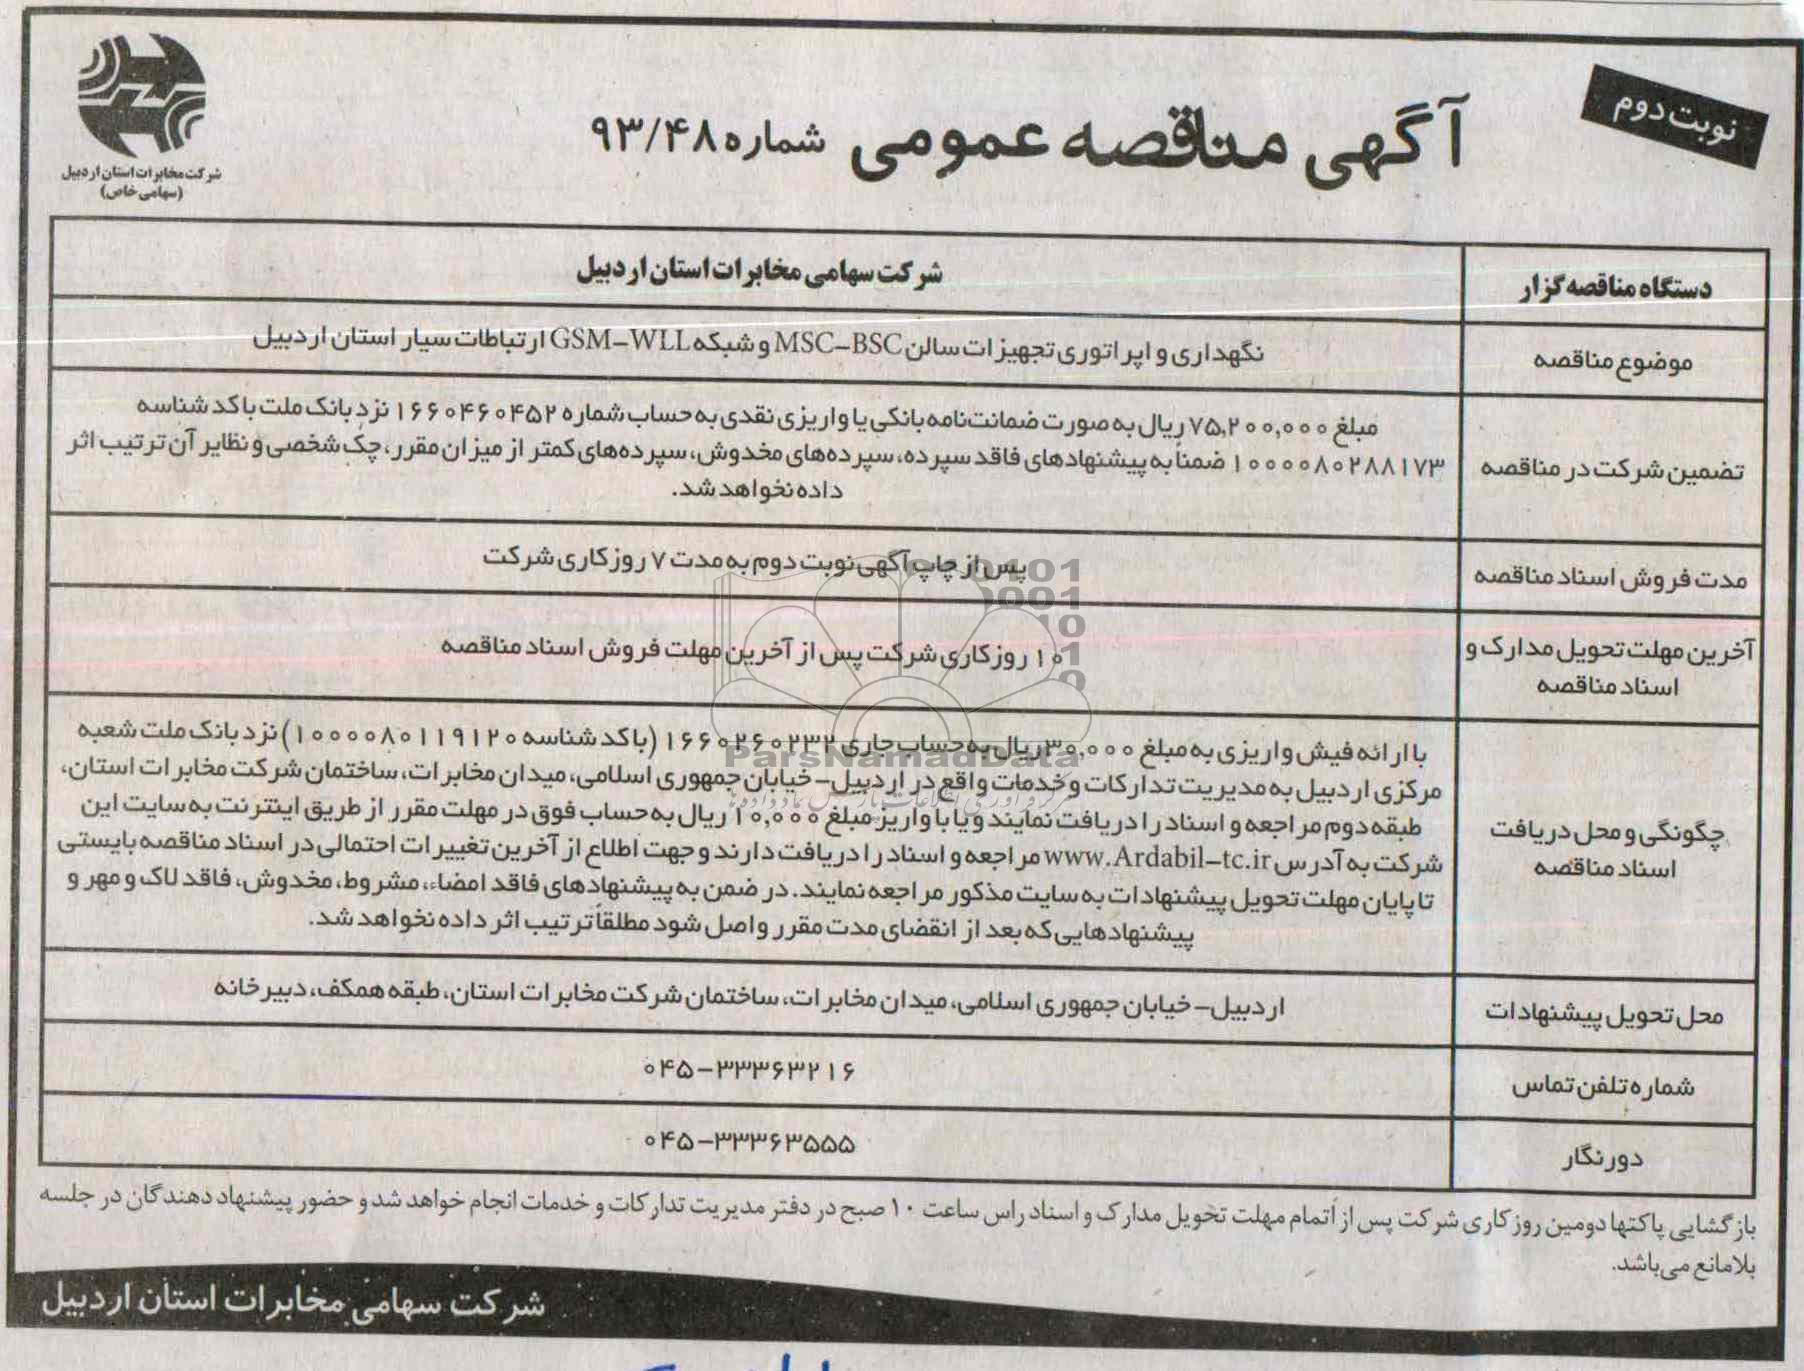 نوبت دوم
آگهی مناقصه عمومی شماره ۹۳/۴۸
شرکت مخابرات استان اردبیل
(سهامی خاص)
دستگاه مناقصه‌گزار
شرکت سهامی مخابرات استان اردبیل
موضوع مناقصه
نگهداری و اپراتوری تجهیزات سالن MSC-BSC و شبکه GSM-WLL ارتباطات سیار استان اردبیل
تضمین شرکت در مناقصه
مبلغ ۷۵,۲۰۰,۰۰۰ ریال به صورت ضمانت‌نامه بانکی یا واریزی نقدی به حساب شماره ۱۶۶۰۴۶۰۴۵۲ نزد بانک ملت با کد شناسه
۱۰۰۰۰۸۰۲۸۸۱۷۳ ضمنا به پیشنهادهای فاقد سپرده، سپرده‌های مخدوش، سپرده‌های کمتر از میزان مقرر، چک شخصی و نظایر آن ترتیب اثر
داده نخواهد شد.
مدت فروش اسناد مناقصه
پس از چاپ آگهی نوبت دوم به مدت ۷ روز کاری شرکت
آخرین مهلت تحویل مدارک و
اسناد مناقصه
۱۰ روز کاری شرکت پس از آخرین مهلت فروش اسناد مناقصه
چگونگی و محل دریافت
اسناد مناقصه
با ارائه فیش واریزی به مبلغ ۳۰,۰۰۰ ریال به حساب جاری ۱۶۶۰۲۶۰۲۳۲ (با کد شناسه ۱۰۰۰۰۸۰۱۱۹۱۲۰) نزد بانک ملت شعبه
مرکزی اردبیل به مدیریت تدارکات و خدمات واقع در اردبیل- خیابان جمهوری اسلامی، میدان مخابرات، ساختمان شرکت مخابرات استان،
طبقه دوم مراجعه و اسناد را دریافت نمایند و یا با واریز مبلغ ۱۰,۰۰۰ ریال به حساب فوق در مهلت مقرر از طریق اینترنت به سایت این
شرکت به آدرس www.Ardabil-tc.ir مراجعه و اسناد را دریافت دارند و جهت اطلاع از آخرین تغییرات احتمالی در اسناد مناقصه بایستی
تا پایان مهلت تحویل پیشنهادات به سایت مذکور مراجعه نمایند. در ضمن به پیشنهادهای فاقد امضاء، مشروط، مخدوش، فاقد لاک و مهر و
پیشنهادهایی که بعد از انقضای مدت مقرر واصل شود مطلقاً ترتیب اثر داده نخواهد شد.
محل تحویل پیشنهادات
اردبیل- خیابان جمهوری اسلامی، میدان مخابرات، ساختمان شرکت مخابرات استان، طبقه همکف، دبیرخانه
شماره تلفن تماس
۰۴۵-۳۳۳۶۳۲۱۶
دورنگار
۰۴۵-۳۳۳۶۳۵۵۵
بازگشایی پاکتها دومین روز کاری شرکت پس از اتمام مهلت تحویل مدارک و اسناد راس ساعت ۱۰ صبح در دفتر مدیریت تدارکات و خدمات انجام خواهد شد و حضور پیشنهاد دهندگان در جلسه
بلامانع می‌باشد.
شرکت سهامی مخابرات استان اردبیل
ParsNamadData